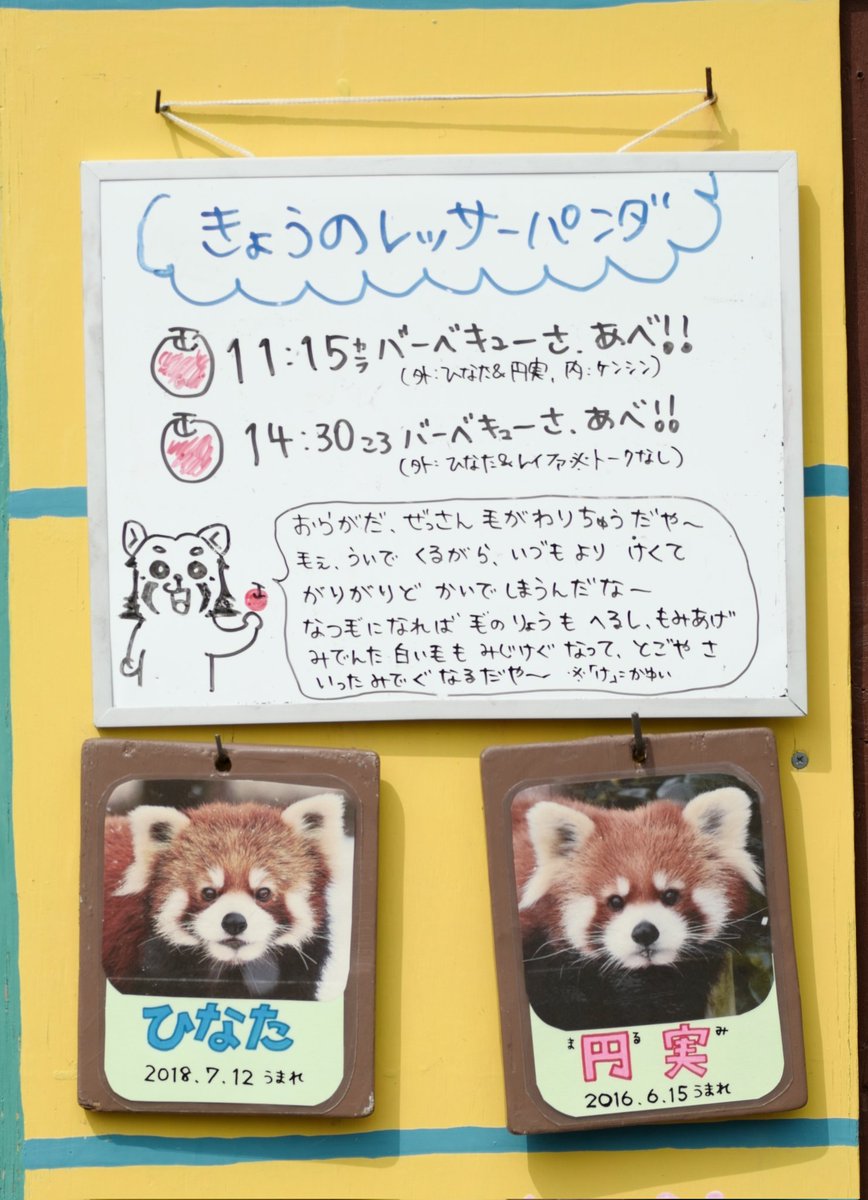 きょうのレッサーパンダ
11:15から バーベキューさ、あべ!!
(外:ひなた&円実、内:ケンシン)
14:30ころ バーベキューさ、あべ!!
(外:ひなた&レイファ※トークなし)
おらがだ、ぜっさん毛がわりちゅうだや～
毛ぇ、ういで くるがら、いづもより けくて
がりがりど かいでしまうんだな～
なつ毛になれば 毛のりょうも へるし、もみあげ
みでんた 白い毛も みじけぐ なって、とごや さ
いった みでぐ なるだや～ ※「け」=かゆい
ひなた
2018.7.12 うまれ
まるみ
円実
2016.6.15 うまれ